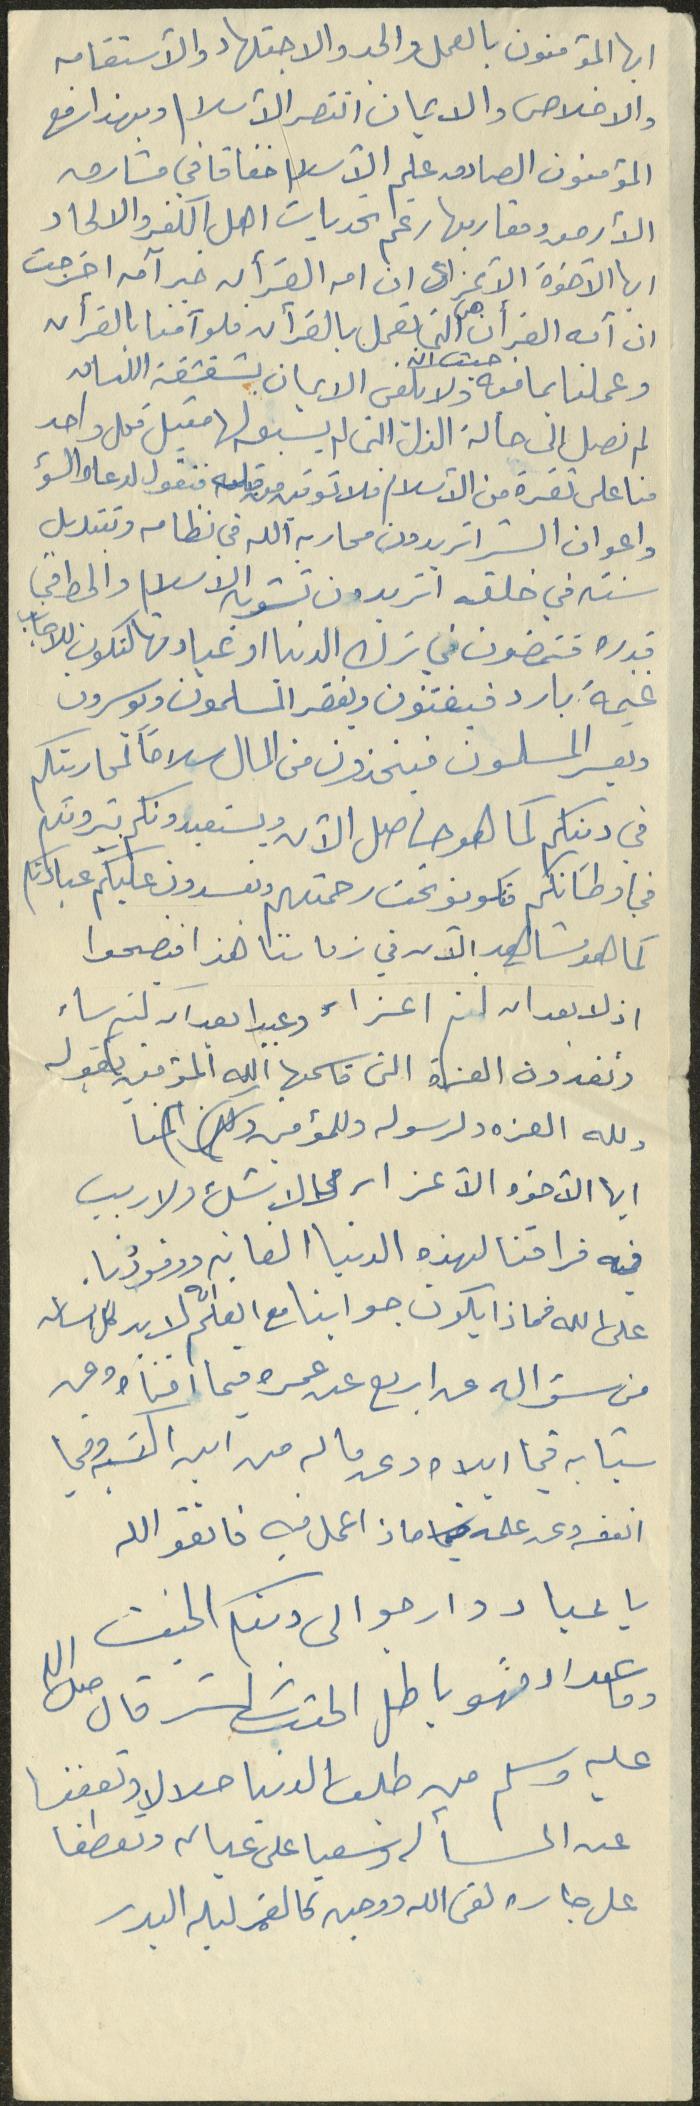 ايها المؤمنون بالعمل والجد والاجتهاد والأستقامه
والاخلاص والايمان انتصر الأسلام وبهذا رفع
المؤمنون الصادقون علم الأسلام خفاقا في مشارق
الأرض ومغاربها رغم تحديات اهل الكفر والالحاد
ايها الأخوة الأعزاء ان امه القرأن خير أمه اخرجت
ان أمه القرأن هي التي تعمل بالقرأن فلو آمنا بالقرأن
وعملنا بما فيه حيث انه ولا يكفي الايمان بشقشقة اللسان
لم نصل الى حالة الذل التي لم يسبق لها مثيل فكل واحد
منا على ثغرة من الأسلام فلا تؤتى من قبله فنقول لدعاة السؤ
واعوان الشر اتريدون محاربة الله في نظامه وتبديل
سنته في خلقه اتريدون تشويه الاسلام والحط في
قدره فتمضون في ترك الدنيا او غيادتها لتكون للأجانب
غنيمة بارد فيغتنون ويفتقر المسلمون ويوسرون
ويعسر المسلمون فيتخذون من المال سلاحاً لمحاربتكم
في دينكم كما هو حاصل الآن ويستعبدونكم بثروتكم
في اوطانكم فتكونو تحت رحمتهم ويفسدون عليكم عباداتكم
كما هو مشاهد الآن في زماننا هذا فتصبحوا
اذلا بعد ان كنتم اعزاء وعبيدا بعد ان كنتم سادة
وتفقدون العزة التي قاسمها الله المؤمنين بقوله
ولله العزه ولرسوله وللمؤمنين ولكن المنا
ايها الأخوه الأعزاء مما لا شك ولا ريب
فيه فراقنا لهذه الدنيا الفانيه ووفودنا
على الله فماذا يكون جوابنا مع العلم أنه لا بد لكل انسان
من سؤاله عن اربع عن عمره فيما أفناه وعن
شبابه فيما ابلاه وعن ماله من اين اكتسبه وفيما
انفقه وعن علمه ماذا عمل فيه فاتقو الله
يا عباد وارجوا الى دينكم الحنيف
وما عداه فهو باطل قال صلى الله
عليه وسلم من طلب الدنيا حلالا وتعففا
عن المسأله وسعيا على عياله وتعطفا
على جاره لقى الله ووجهه كالقمر ليله البدر